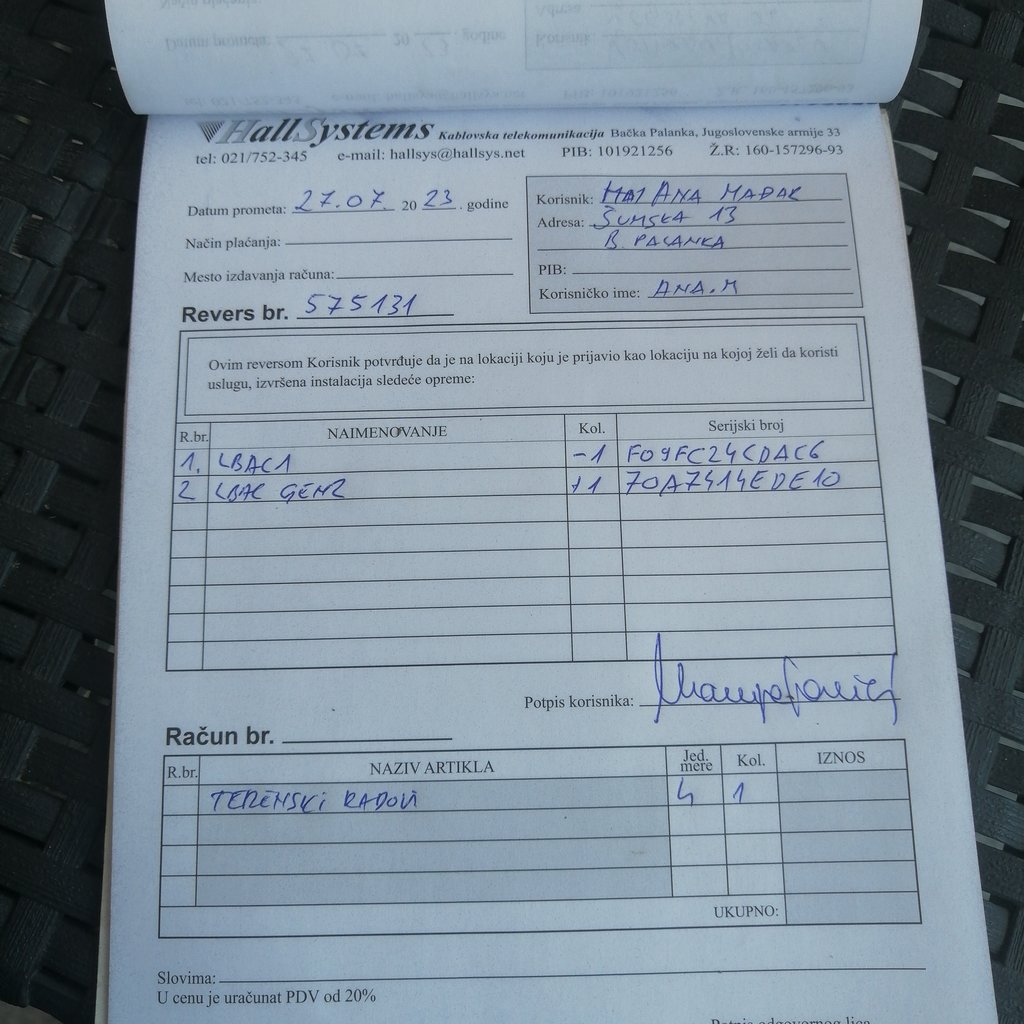 HallSystems Kablovska telekomunikacija Bačka Palanka, Jugoslovenske armije 33
tel: 021/752-345 e-mail: hallsys@hallsys.net PIB: 101921256 Ž.R: 160-157296-93
Datum prometa: 27.07. 20 23. godine
Način plaćanja:
Mesto izdavanja računa:
Revers br. 575131
Korisnik: ANA
Adresa: ŠUMSKA 13
B PALANKA
PIB:
Korisničko ime: ANA.M
Ovim reversom Korisnik potvrđuje da je na lokaciji koju je prijavio kao lokaciju na kojoj želi da koristi
uslugu, izvršena instalacija sledeće opreme:
R.br. NAIMENOVANJE Kol. Serijski broj
1. LBAC1 -1 F09FC24CDAC6
2 LBAC GEN2 +1 70A7414EDE10
Potpis korisnika:
Račun br.
R.br. NAZIV ARTIKLA Jed. mere Kol. IZNOS
TERENSKI RADOVI 1
UKUPNO:
Slovima:
U cenu je uračunat PDV od 20%